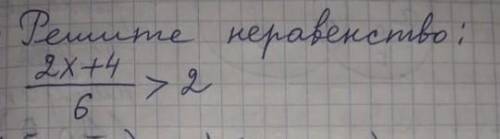 Решите неравенство:
2x+4
—— > 2
6